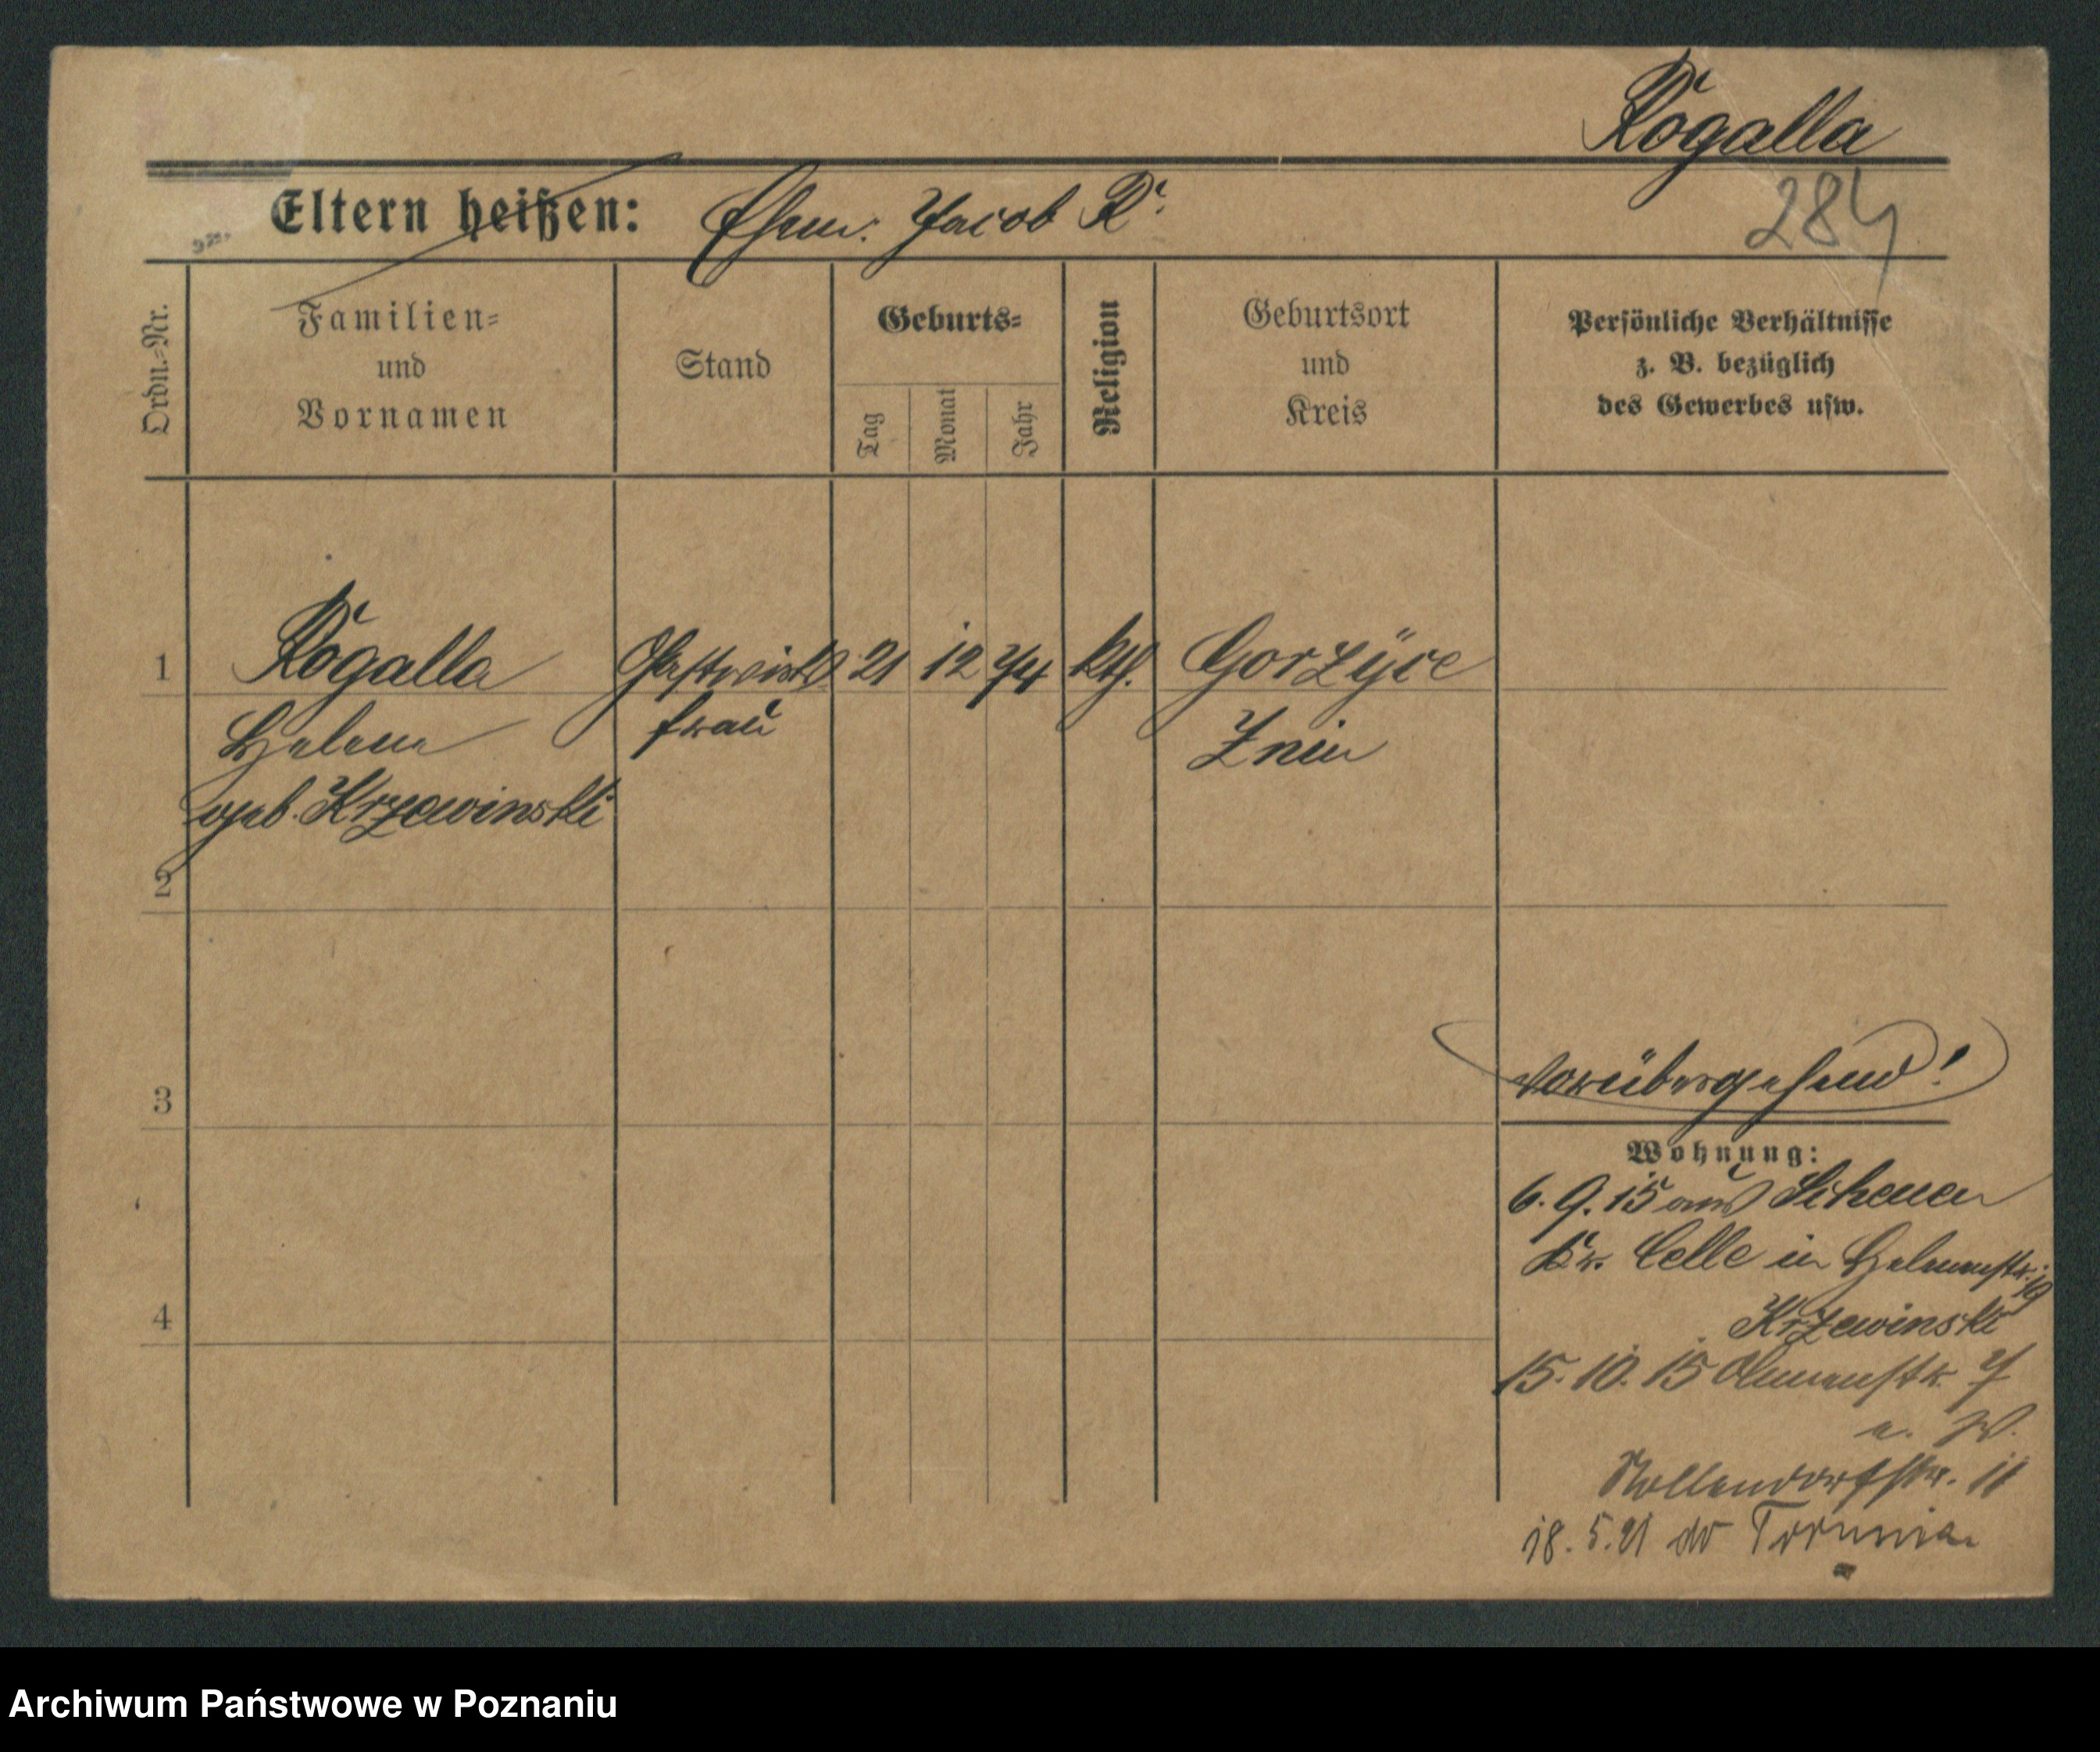 Rogalla
284
Eltern heißen: Ehem. Jacob R.
Ordn.-Nr.
Familien-
und
Vornamen
Stand
Geburts-
Tag
Monat
Jahr
Religion
Geburtsort
und
Kreis
Persönliche Verhältnisse
z. B. bezüglich
des Gewerbes usw.
1 Rogalla Gastwirts 21 12 74 kth. Gorzyce
Helene frau Znin
geb. Krzewinski
2
vorübergehend!
3
Wohnung:
6. 9. 15 aus Scheuen
Kr. Celle in Helenenstr. 19
4
Krzewinski
15. 10. 15 Blumenstr. 7
u. W.
Nollendorfstr. 11
18. 5. 21 do Torunia
Archiwum Państwowe w Poznaniu